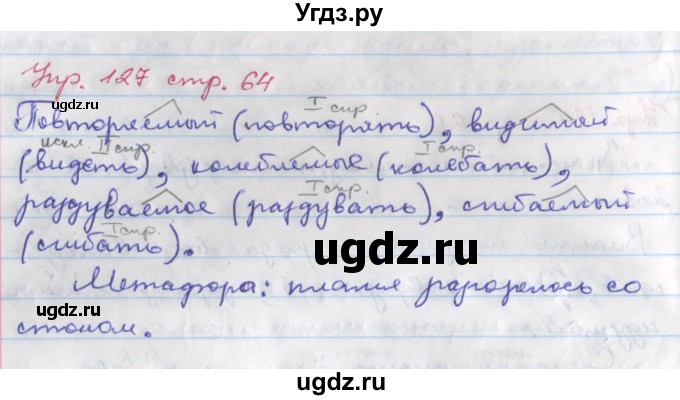 Угдз.ру
Упр. 127 стр. 64
I спр.
Повторяемый (повторять), видимый
искл. II спр. I спр. I спр.
(видеть), колеблемые (колебать),
I спр.
раздуваемое (раздувать), сгибаемый
I спр.
(сгибать).
Метафора: пламя разгорелось со
стоном.
ugdz.ru
ugdz.ru
ugdz.ru
ugdz.ru
ugdz.ru
ugdz.ru